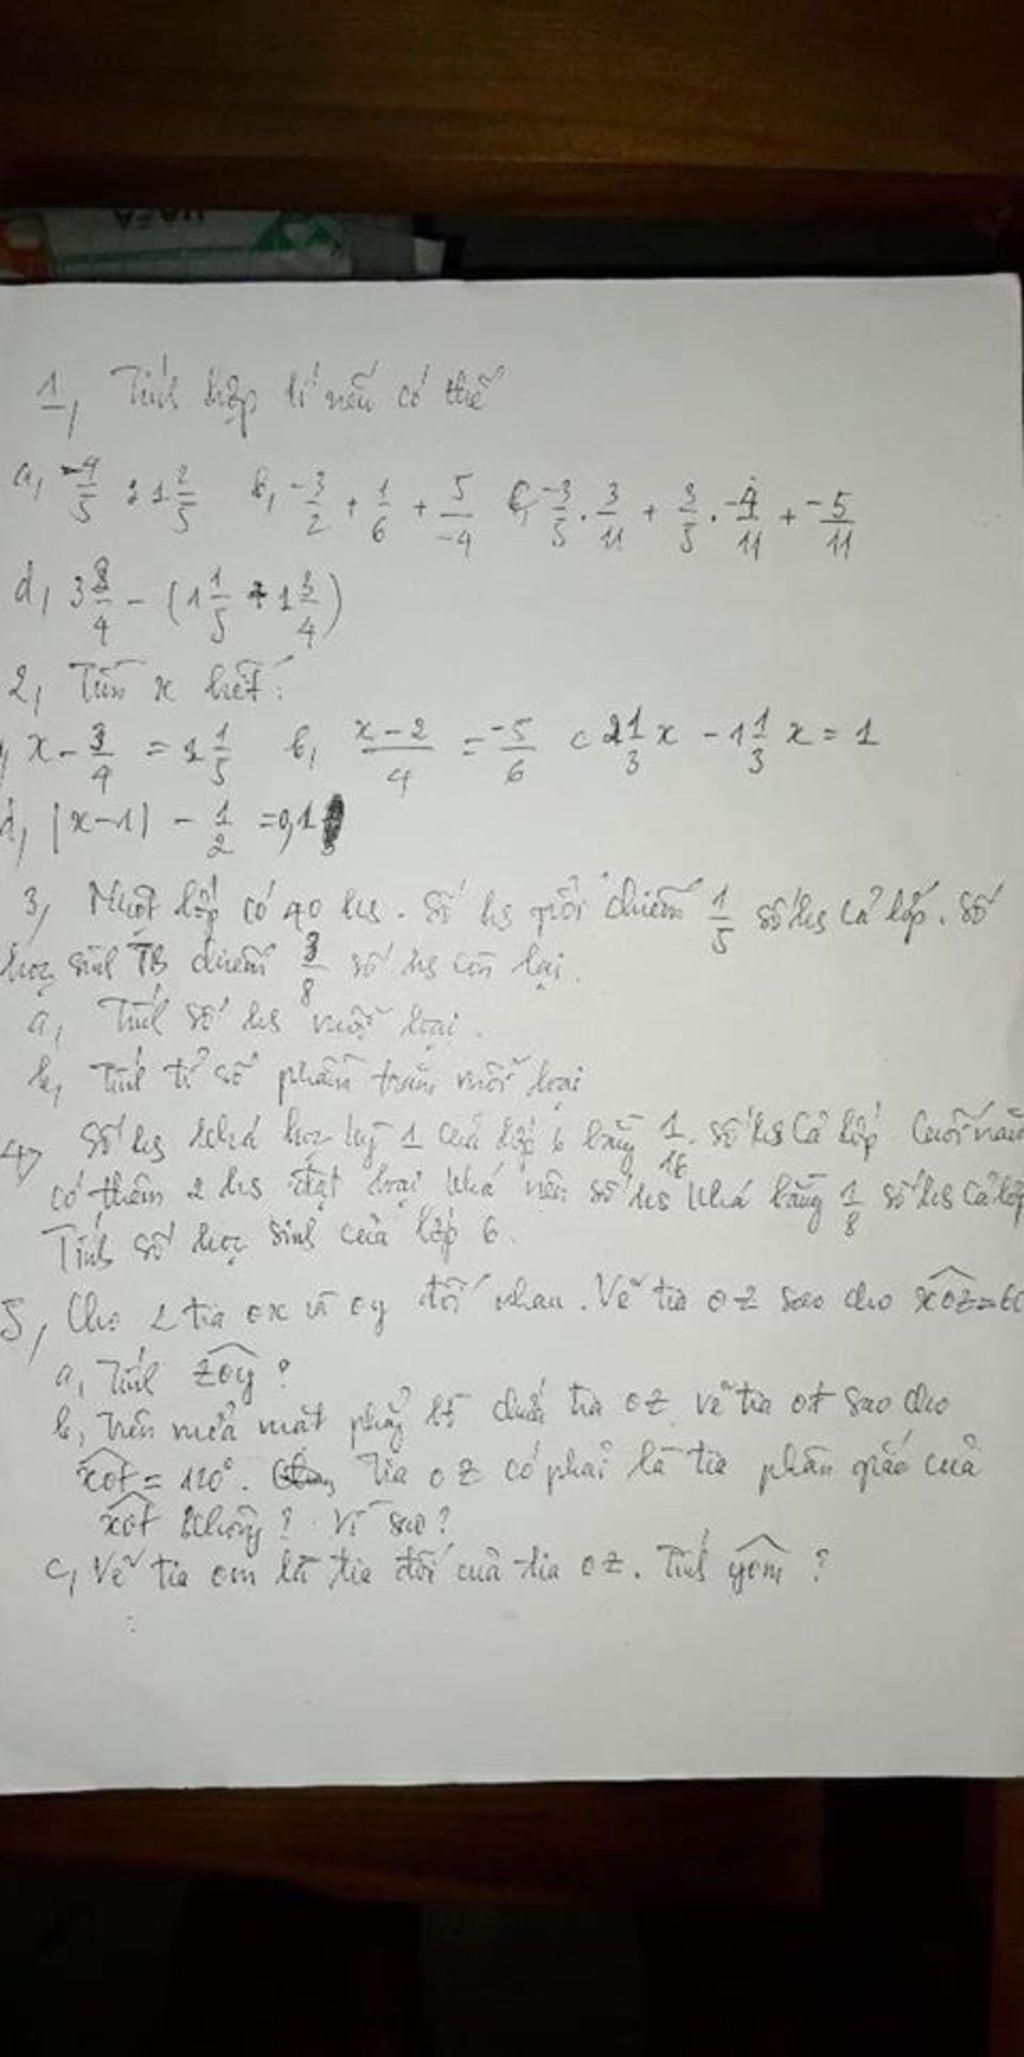 1, Tính hợp lí nếu có thể
a, -4/5 : 1 2/5 b, -3/2 + 1/6 + 5/-4 c, -3/5 . 3/11 + 3/5 . -9/11 + -5/11
d, 3 3/4 - (1 1/5 + 1 3/4)
2, Tìm x biết:
x - 3/4 = 1 1/5 b, x-2/4 = -5/6 c 2 1/3 x - 1 1/3 x = 1
d, |x-1| - 1/2 = 0,1
3, Một lớp có 40 hs. Số hs giỏi chiếm 1/5 số hs cả lớp. Số
học sinh TB chiếm 3/8 số hs còn lại.
a, Tính số hs mỗi loại.
b, Tính tỉ số phần trăm mỗi loại
4, Số hs khá học kỳ 1 của lớp 6 bằng 1/16 số hs cả lớp. Cuối năm
có thêm 2 hs đạt loại khá nên số hs khá bằng 1/8 số hs cả lớp
Tính số học sinh của lớp 6.
5, Cho 2 tia ox và oy đối nhau. Vẽ tia oz sao cho xoz = 60
a, Tính zoy ?
b, Trên nửa mặt phẳng bờ chứa tia oz vẽ tia ot sao cho
xot = 120°. Tia oz có phải là tia phân giác của
xot không ? Vì sao ?
c, Vẽ tia om là tia đối của tia oz. Tính yom ?